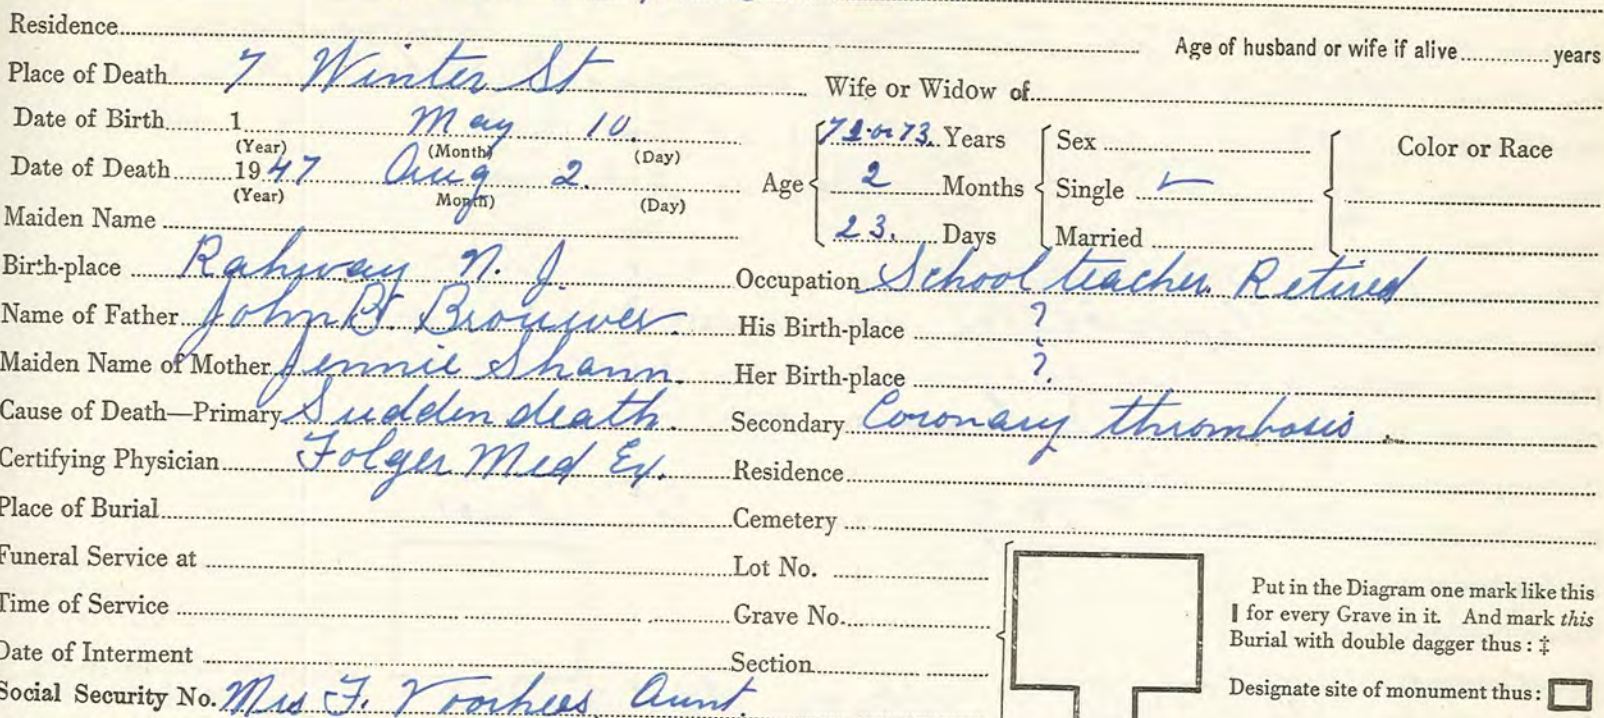 Residence Age of husband or wife if alive years
Place of Death 7 Winter St Wife or Widow of
Date of Birth 1 May 10. Age 72 or 73. Years Sex Color or Race
(Year) (Month) (Day)
Date of Death 1947 Aug 2. 2 Months Single ✓
(Year) Month) (Day)
Maiden Name 23. Days Married
Birth-place Rahway N. J. Occupation School teacher. Retired
Name of Father John B. Brouwer. His Birth-place ?
Maiden Name of Mother Jennie Shann. Her Birth-place ?.
Cause of Death—Primary Sudden death. Secondary Coronary thrombosis.
Certifying Physician Folger Med Ex. Residence
Place of Burial Cemetery
Funeral Service at Lot No.
Time of Service Grave No.
Date of Interment Section
Social Security No. Mrs F. Voorhees Aunt.
Put in the Diagram one mark like this
| for every Grave in it. And mark this
Burial with double dagger thus: ‡
Designate site of monument thus: